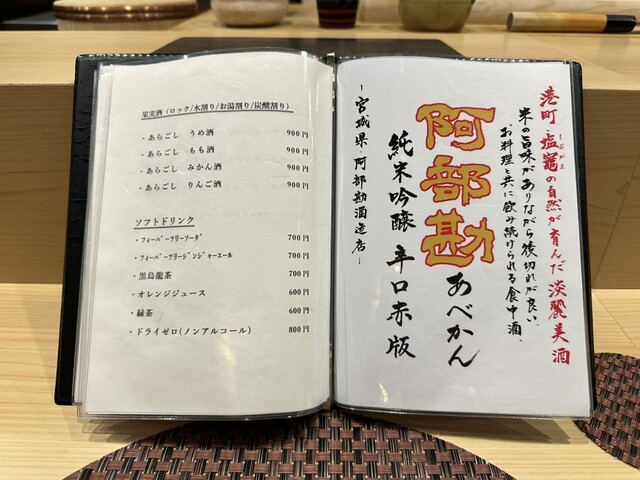 果実酒(ロック/水割り/お湯割り/炭酸割り)
・あらごし うめ酒 900円
・あらごし もも酒 900円
・あらごし みかん酒 900円
・あらごし りんご酒 900円
ソフトドリンク
・フィーバーツリーソーダ 700円
・フィーバーツリージンジャーエール 700円
・黒烏龍茶 700円
・オレンジジュース 600円
・緑茶 600円
・ドライゼロ(ノンアルコール) 800円
港町・塩竈の自然が育んだ淡麗美酒
しおがま
米の旨味がありながら後切れが良い、
お料理と共に飲み続けられる食中酒。
阿部勘 あべかん
純米吟醸 辛口赤版
-宮城県 阿部勘酒造店-